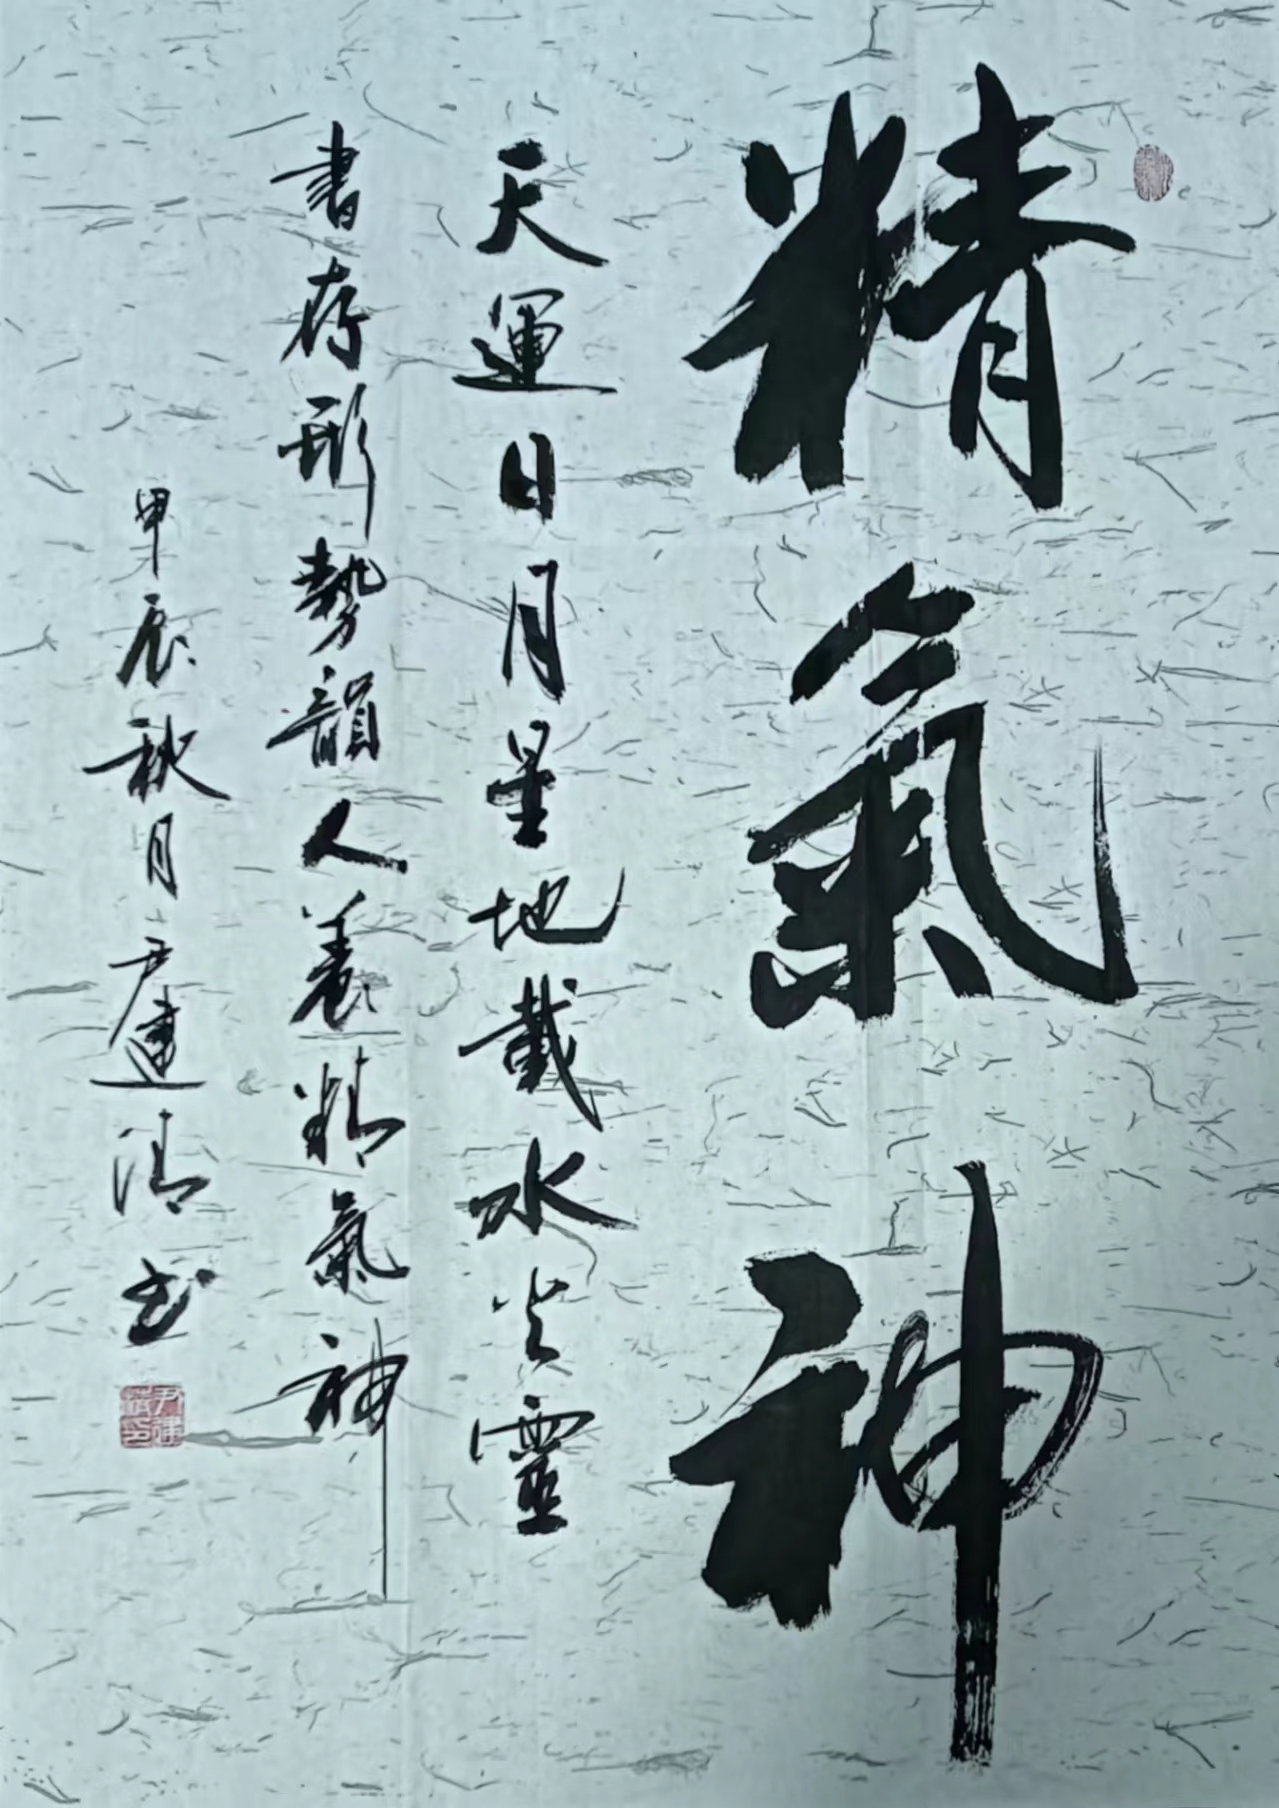 精氣神
天運日月星地載水火靈
書存形勢韻人養精氣神
甲辰秋月尹建清书